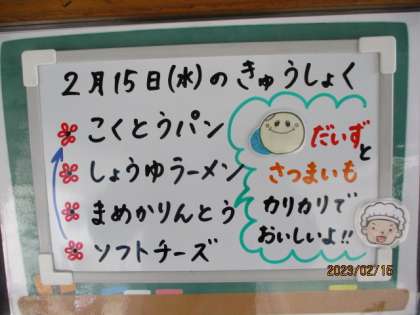 2月15日(水)のきゅうしょく
こくとうパン
しょうゆラーメン
まめかりんとう
ソフトチーズ
だいずと
さつまいも
カリカリで
おいしいよ!!
2023/02/15